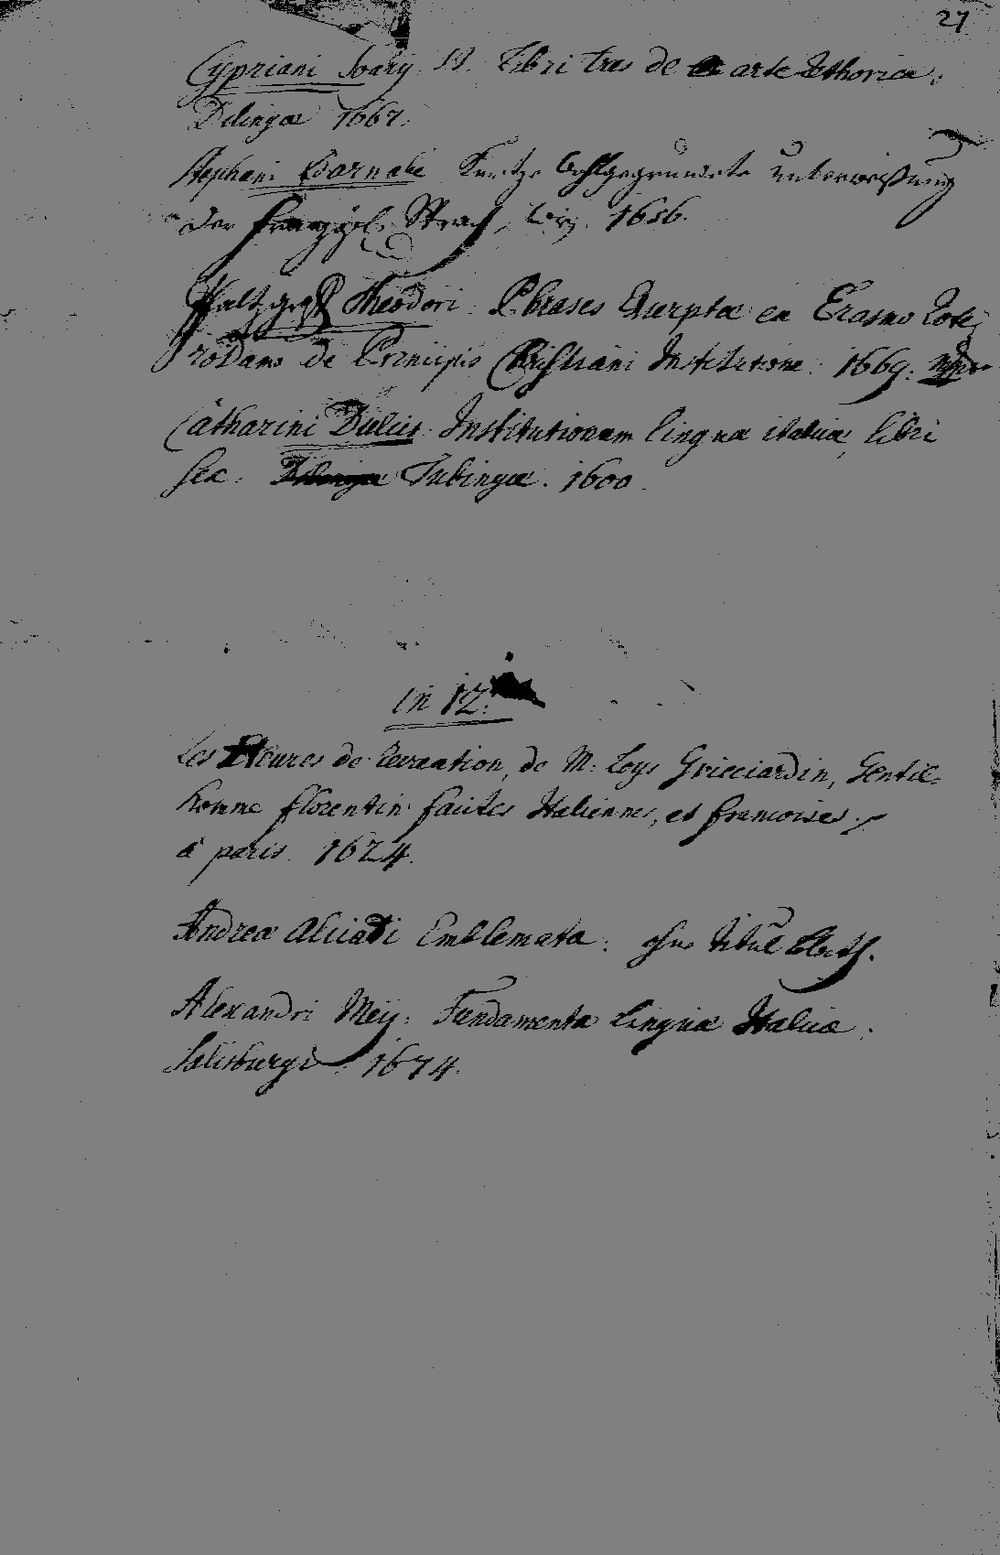 27
Cypriani Soarij SJ. Libri tres de arte Rethorica.
Dilingæ 1667.
Stephani Barnabe Kurtze wohlgegründete unterweißung
der Französ. Sprach, 1656.
Pfaltzgraff Theodori Phrases Exerptæ ex Erasmo Rote,,
rodamo de Principis Christiani Institutione. 1669.
Catharini Dulcis Institutionum linguæ italicæ, libri
sex. Tubingæ. 1600.
in 12.
Les Heures de recreation, de M: Loys Gricciardin, Gentil=
homme florentin faictes Italiennes, et francoises.
a paris. 1624.
Andreæ Alciati Emblemata. ohne titul blath.
Alexandri Meij. Fundamenta Linguæ Italicæ.
Salisburgi. 1674.